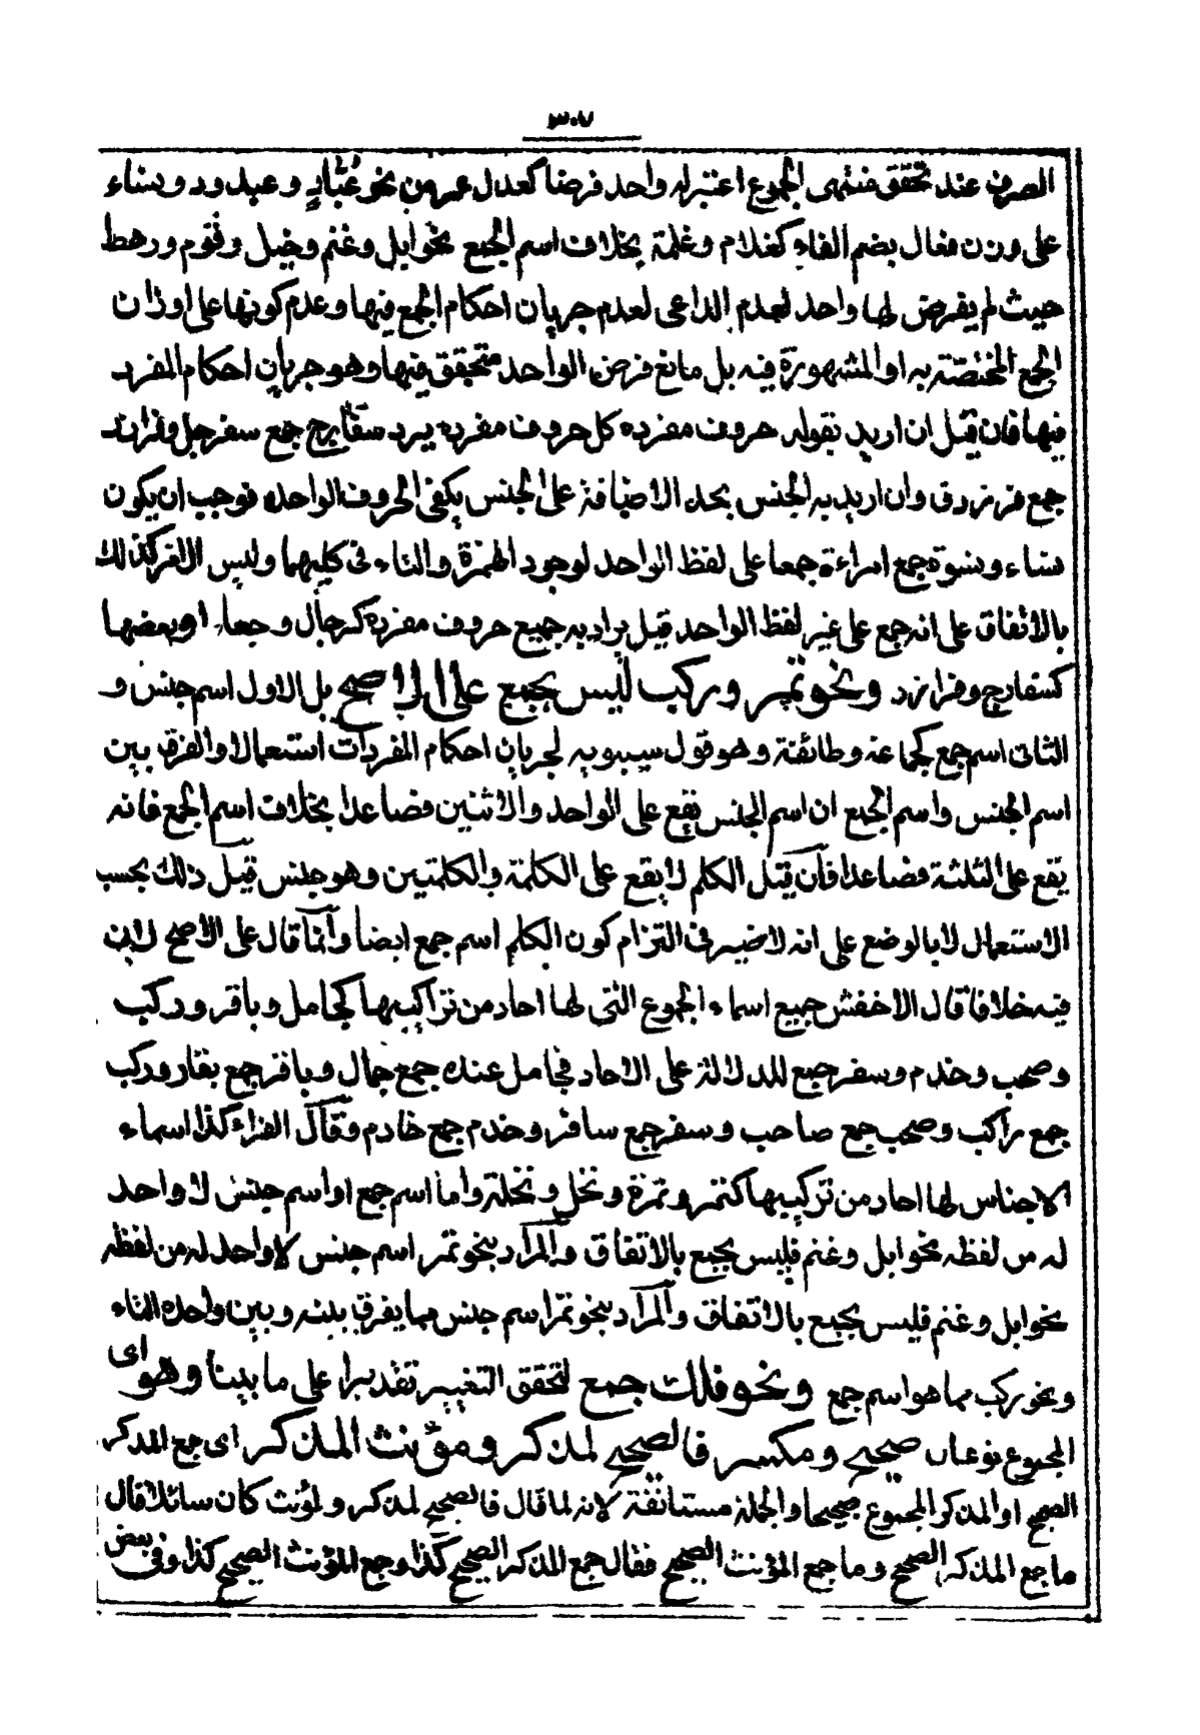 ٣٠٧
الصرف عند تحقق منتهى الجموع اعتبر له واحد فرضا كعدل عمر ومن نحو عباديد وعبدود ونساء
على وزن فعال بضم الفاء كغلام وغلمة بخلاف اسم الجمع نحو ابل وغنم وخيل وقوم ورهط
حيث لم يفرض لها واحد لعدم الداعى لعدم جريان احكام الجمع فيها وعدم كونها على اوزان
الجمع المختصة به او المشهورة فيه بل مانع فرض الواحد متحقق فيها وهو جريان احكام المفرد
فيها فان قيل ان اريد بقوله حروف مفرده كل حروف مفرده يرد سفارج جمع سفرجل وفرازد
جمع فرزدق وان اريد به الجنس بحد الاضافة على الجنس يكفى الحروف الواحده فوجب ان يكون
نساء ونسوة جمع امراءة جمعا على لفظ الواحد لوجود الهمزة والتاء فى كليهما وليس الامر كذلك
بالاتفاق على انه جمع على غير لفظ الواحد قيل يراد به جميع حروف مفرده كرجال وجعا او بعضها
كسفارج وفرازد ونحو تمر وركب ليس بجمع على الاصح بل الاول اسم جنس و
الثانى اسم جمع كجماعة وطائفة وهو قول سيبويه لجريان احكام المفردات استعمالا والفرق بين
اسم الجنس واسم الجمع ان اسم الجنس يقع على الواحد والاثنين فصاعدا بخلاف اسم الجمع فانه
يقع على الثلثة فصاعدا فان قيل الكلم لا يقع على الكلمة والكلمتين وهو جنس قيل ذلك بحسب
الاستعمال لا بالوضع على انه لا ضير فى التزام كون الكلم اسم جمع ايضا وانما قال على الاصح لان
فيه خلافا قال الاخفش جميع اسماء الجموع التى لها احاد من تراكيبها كجامل وباقر وركب
وصحب وخدم وسفر جمع للدلالة على الاحاد فجامل عنده جمع جمال وباقر جمع بقار وركب
جمع راكب وصحب جمع صاحب وسفر جمع سافر وخدم جمع خادم وقال الفراء كذا اسماء
الاجناس لها احاد من تركيبها كتمر وتمرة ونخل ونخلة واما اسم جمع او اسم جنس لا واحد
له من لفظه نحو ابل وغنم فليس بجمع بالاتفاق والمراد بنحو تمر اسم جنس لا واحد له من لفظه
نحو ابل وغنم فليس بجمع بالاتفاق والمراد بنحو تمر اسم جنس مما يفرق بينه وبين واحده التاء
ونحو ركب مما هو اسم جمع ونحو فلك جمع لتحقق التغيير تقديرا على ما بينا وهو اى
المجموع نوعان صحيح ومكسر فالصحيح لمذكر ومؤنث المذكر اى جمع المذكر
الصحيح او المذكر المجموع صحيحا والجملة مستانفة لانه لما قال فالصحيح لمذكر ولمؤنث كان سائلا قال
ما جمع المذكر الصحيح وما جمع المؤنث الصحيح فقال جمع المذكر الصحيح كذا وجمع المؤنث الصحيح كذا وفى بعض